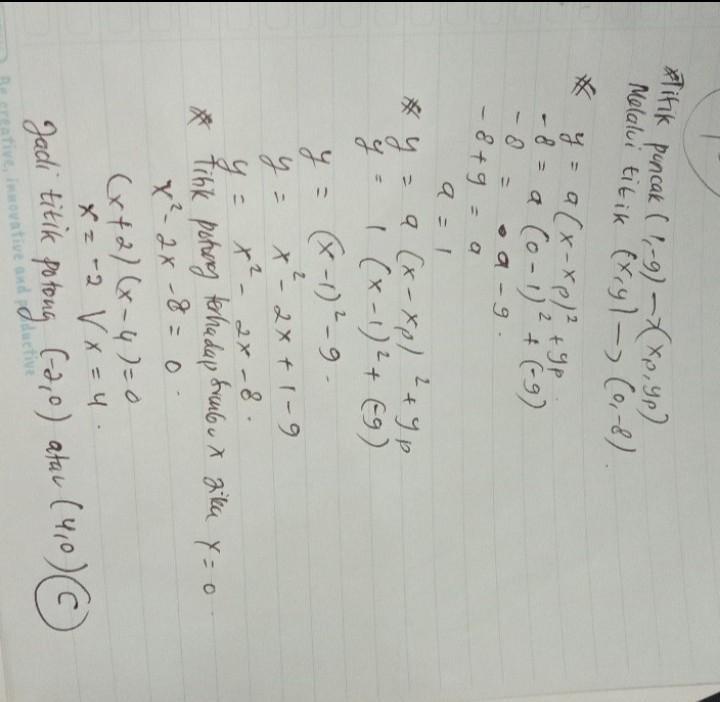 *Titik puncak (1,-9) → (xp, yp)
Melalui titik (x,y) → (0,-8).
* y = a (x - xp)² + yp.
-8 = a (0-1)² + (-9)
-8 = a - 9.
-8 + 9 = a
a = 1
* y = a (x - xp)² + yp
y = 1 (x - 1)² + (-9)
y = (x-1)² - 9.
y = x² - 2x + 1 - 9
y = x² - 2x - 8.
* Titik potong terhadap sumbu x jika y = 0.
x² - 2x - 8 = 0.
(x+2) (x-4) = 0
x = -2 V x = 4.
Jadi titik potong (-2,0) atau (4,0) C
Be creative, innovative and productive